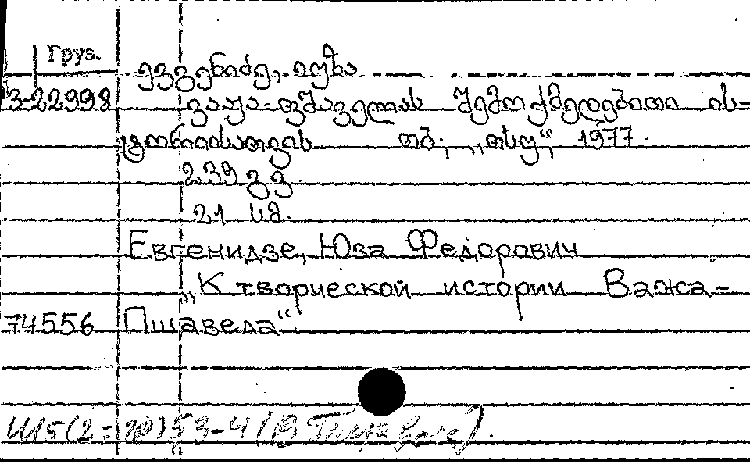 Груз.
ევგენიძე, იუზა
3-22998 ვაჟა-ფშაველას შემოქმედებითი ის-
ტორიისათვის თბ., „თსუ“, 1977.
239 გვ.
21 სმ.
Евгенидзе, Юза Федорович
„К творческой истории Важа-
74556 Пшавела“.
Ш5(2=Гр)53-4